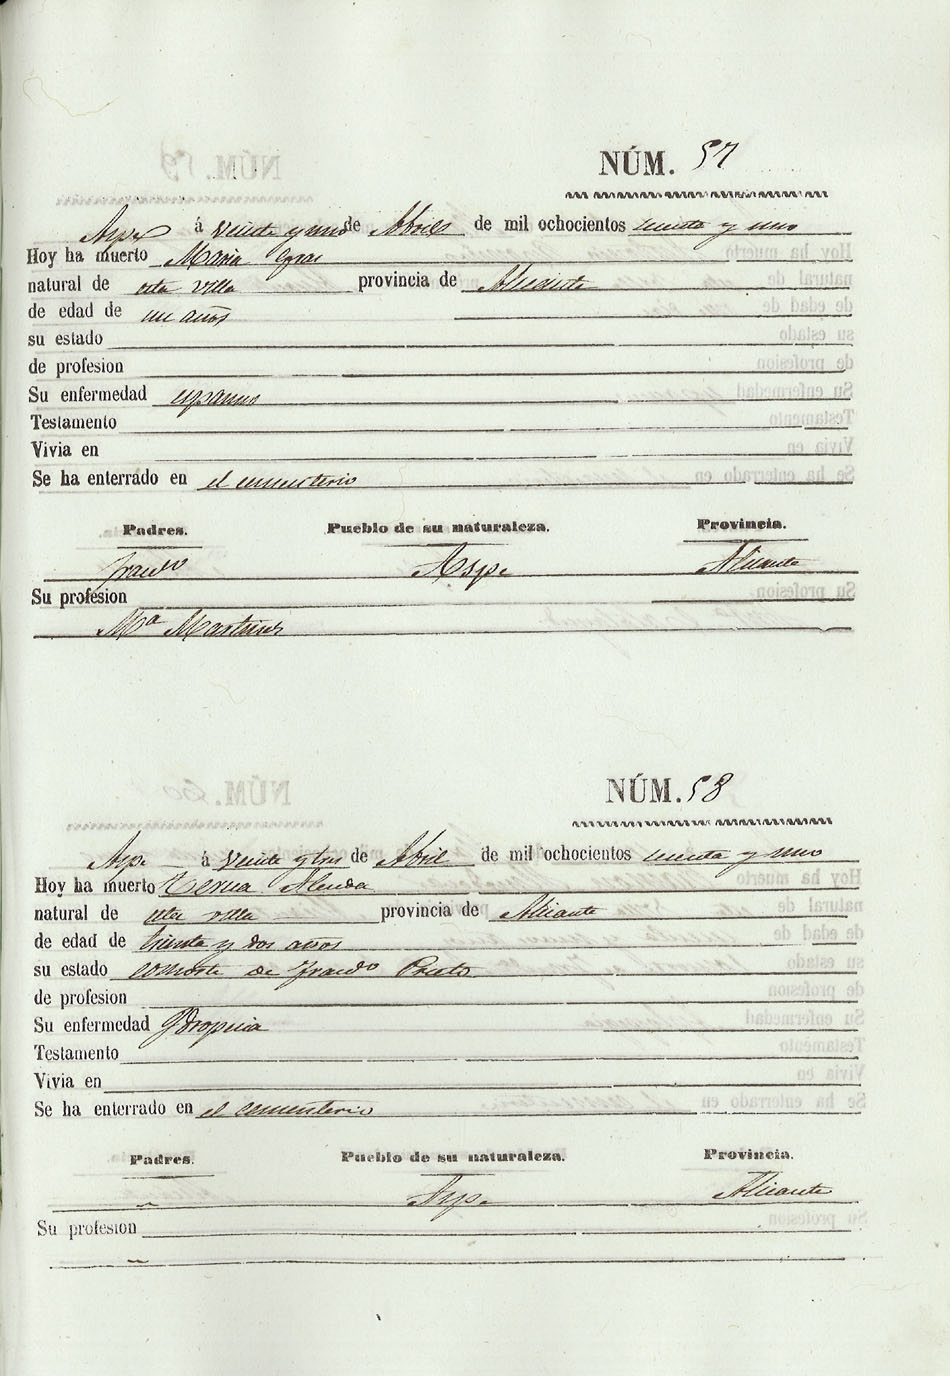 NÚM. 57
Aspe á veinte y uno de Abril de mil ochocientos sesenta y uno
Hoy ha muerto Maria Gras
natural de esta villa provincia de Alicante
de edad de un años
su estado
de profesion
Su enfermedad espasmo
Testamento
Vivia en
Se ha enterrado en el cementerio
Padres. Pueblo de su naturaleza. Provincia.
Franco Aspe Alicante
Su profesion
Mª Martinez
NÚM. 58
Aspe á veinte y tres de Abril de mil ochocientos sesenta y uno
Hoy ha muerto Teresa Alenda
natural de esta villa provincia de Alicante
de edad de treinta y dos años
su estado consorte de Franco Prieto
de profesion
Su enfermedad Ydropesia
Testamento
Vivia en
Se ha enterrado en el cementerio
Padres. Pueblo de su naturaleza. Provincia.
Aspe Alicante
Su profesion